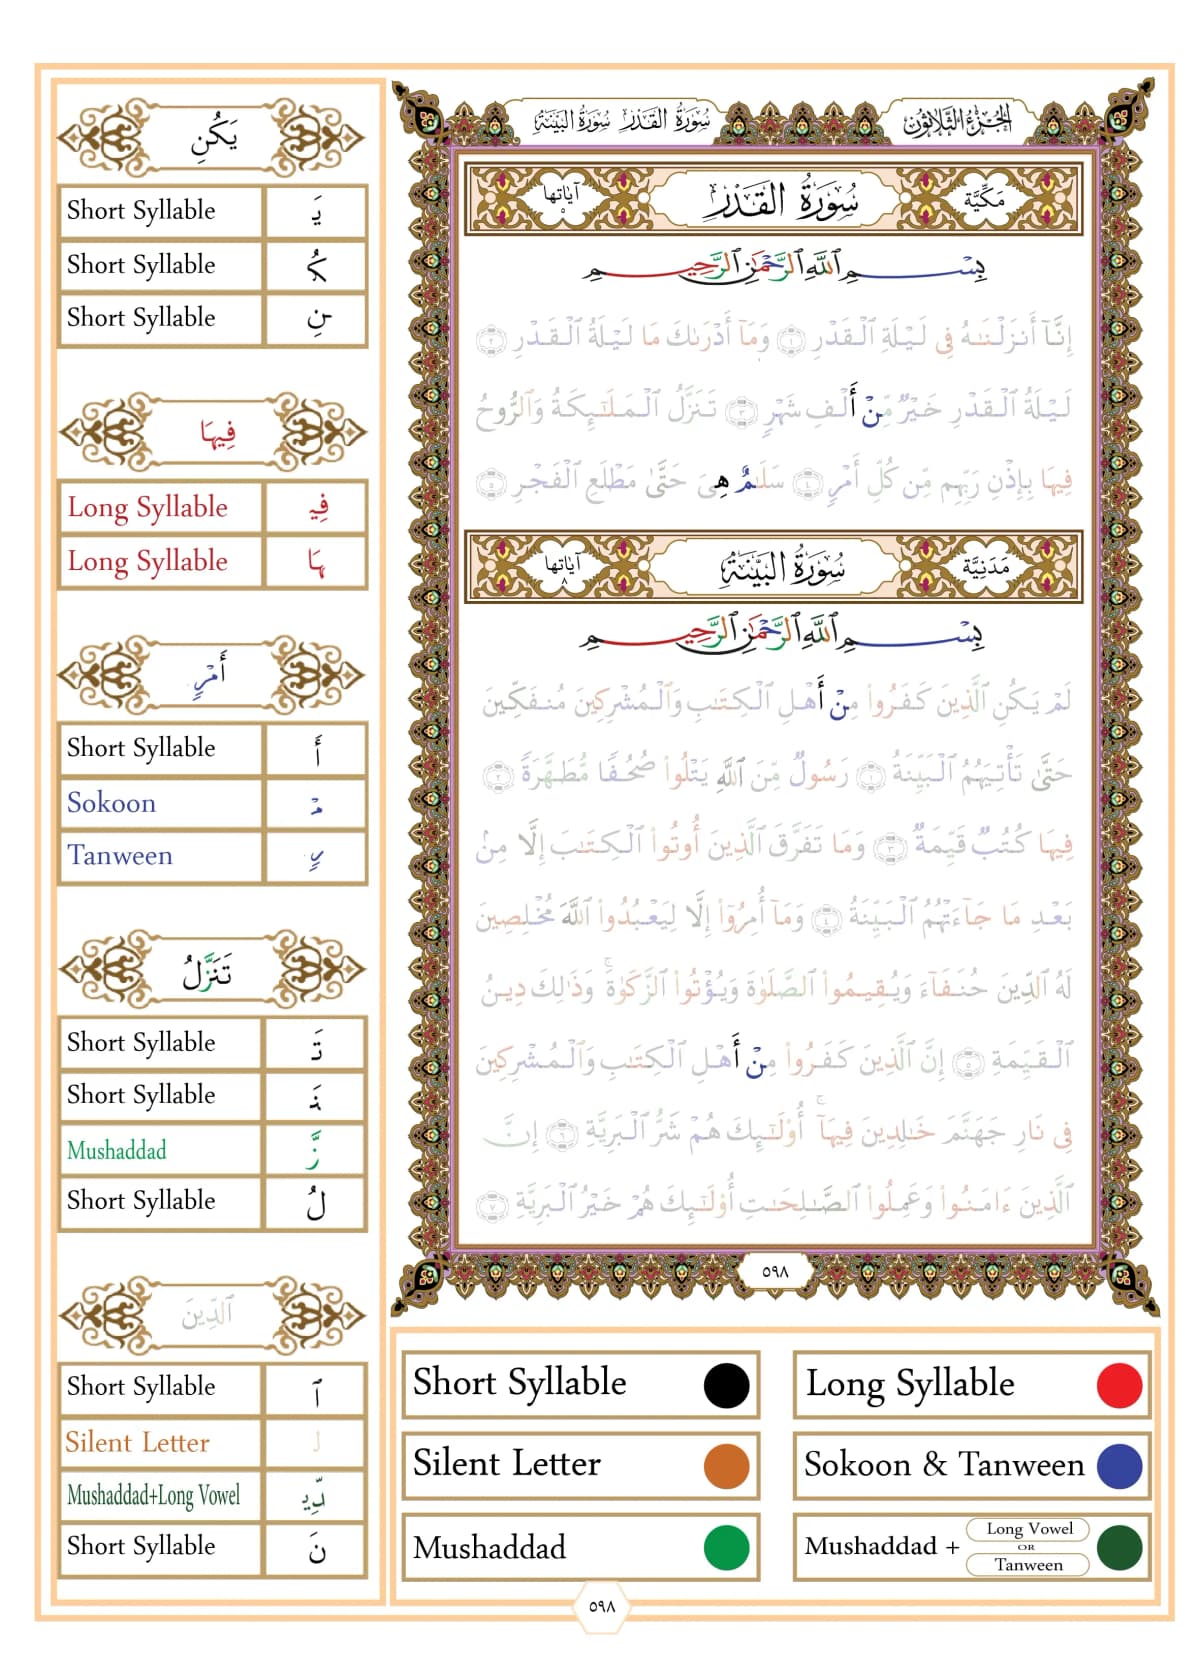 الجُزْءُ الثَّلَاثُونَ
سُورَةُ القَدْرِ سُورَةُ البَيِّنَةِ
مَكِّيَّة
سُورَةُ القَدْرِ
آيَاتها
٥
بِسْمِ ٱللَّهِ ٱلرَّحْمَٰنِ ٱلرَّحِيمِ
إِنَّآ أَنزَلْنَٰهُ فِي لَيْلَةِ ٱلْقَدْرِ ۝١ وَمَآ أَدْرَىٰكَ مَا لَيْلَةُ ٱلْقَدْرِ ۝٢
لَيْلَةُ ٱلْقَدْرِ خَيْرٌ مِّنْ أَلْفِ شَهْرٍ ۝٣ تَنَزَّلُ ٱلْمَلَٰٓئِكَةُ وَٱلرُّوحُ
فِيهَا بِإِذْنِ رَبِّهِم مِّن كُلِّ أَمْرٍ ۝٤ سَلَٰمٌ هِيَ حَتَّىٰ مَطْلَعِ ٱلْفَجْرِ ۝٥
مَدَنِيَّة
سُورَةُ البَيِّنَةِ
آيَاتها
٨
بِسْمِ ٱللَّهِ ٱلرَّحْمَٰنِ ٱلرَّحِيمِ
لَمْ يَكُنِ ٱلَّذِينَ كَفَرُوا۟ مِنْ أَهْلِ ٱلْكِتَٰبِ وَٱلْمُشْرِكِينَ مُنفَكِّينَ
حَتَّىٰ تَأْتِيَهُمُ ٱلْبَيِّنَةُ ۝١ رَسُولٌ مِّنَ ٱللَّهِ يَتْلُوا۟ صُحُفًا مُّطَهَّرَةً ۝٢
فِيهَا كُتُبٌ قَيِّمَةٌ ۝٣ وَمَا تَفَرَّقَ ٱلَّذِينَ أُوتُوا۟ ٱلْكِتَٰبَ إِلَّا مِنۢ
بَعْدِ مَا جَآءَتْهُمُ ٱلْبَيِّنَةُ ۝٤ وَمَآ أُمِرُوٓا۟ إِلَّا لِيَعْبُدُوا۟ ٱللَّهَ مُخْلِصِينَ
لَهُ ٱلدِّينَ حُنَفَآءَ وَيُقِيمُوا۟ ٱلصَّلَوٰةَ وَيُؤْتُوا۟ ٱلزَّكَوٰةَ ۚ وَذَٰلِكَ دِينُ
ٱلْقَيِّمَةِ ۝٥ إِنَّ ٱلَّذِينَ كَفَرُوا۟ مِنْ أَهْلِ ٱلْكِتَٰبِ وَٱلْمُشْرِكِينَ
فِي نَارِ جَهَنَّمَ خَٰلِدِينَ فِيهَآ ۚ أُو۟لَٰٓئِكَ هُمْ شَرُّ ٱلْبَرِيَّةِ ۝٦ إِنَّ
ٱلَّذِينَ ءَامَنُوا۟ وَعَمِلُوا۟ ٱلصَّٰلِحَٰتِ أُو۟لَٰٓئِكَ هُمْ خَيْرُ ٱلْبَرِيَّةِ ۝٧
٥٩٨
يَكُنِ
Short Syllable يَـ
Short Syllable ـكُـ
Short Syllable ـنِ
فِيهَا
Long Syllable فِيـ
Long Syllable ـهَا
أَمْرٍ
Short Syllable أَ
Sokoon مْـ
Tanween ـرٍ
تَنَزَّلُ
Short Syllable تَـ
Short Syllable ـنَـ
Mushaddad ـزَّ
Short Syllable لُ
ٱلدِّينَ
Short Syllable ٱ
Silent Letter لـ
Mushaddad+Long Vowel ـدِّيـ
Short Syllable ـنَ
Short Syllable
Long Syllable
Silent Letter
Sokoon & Tanween
Mushaddad
Mushaddad + Long Vowel OR Tanween
٥٩٨